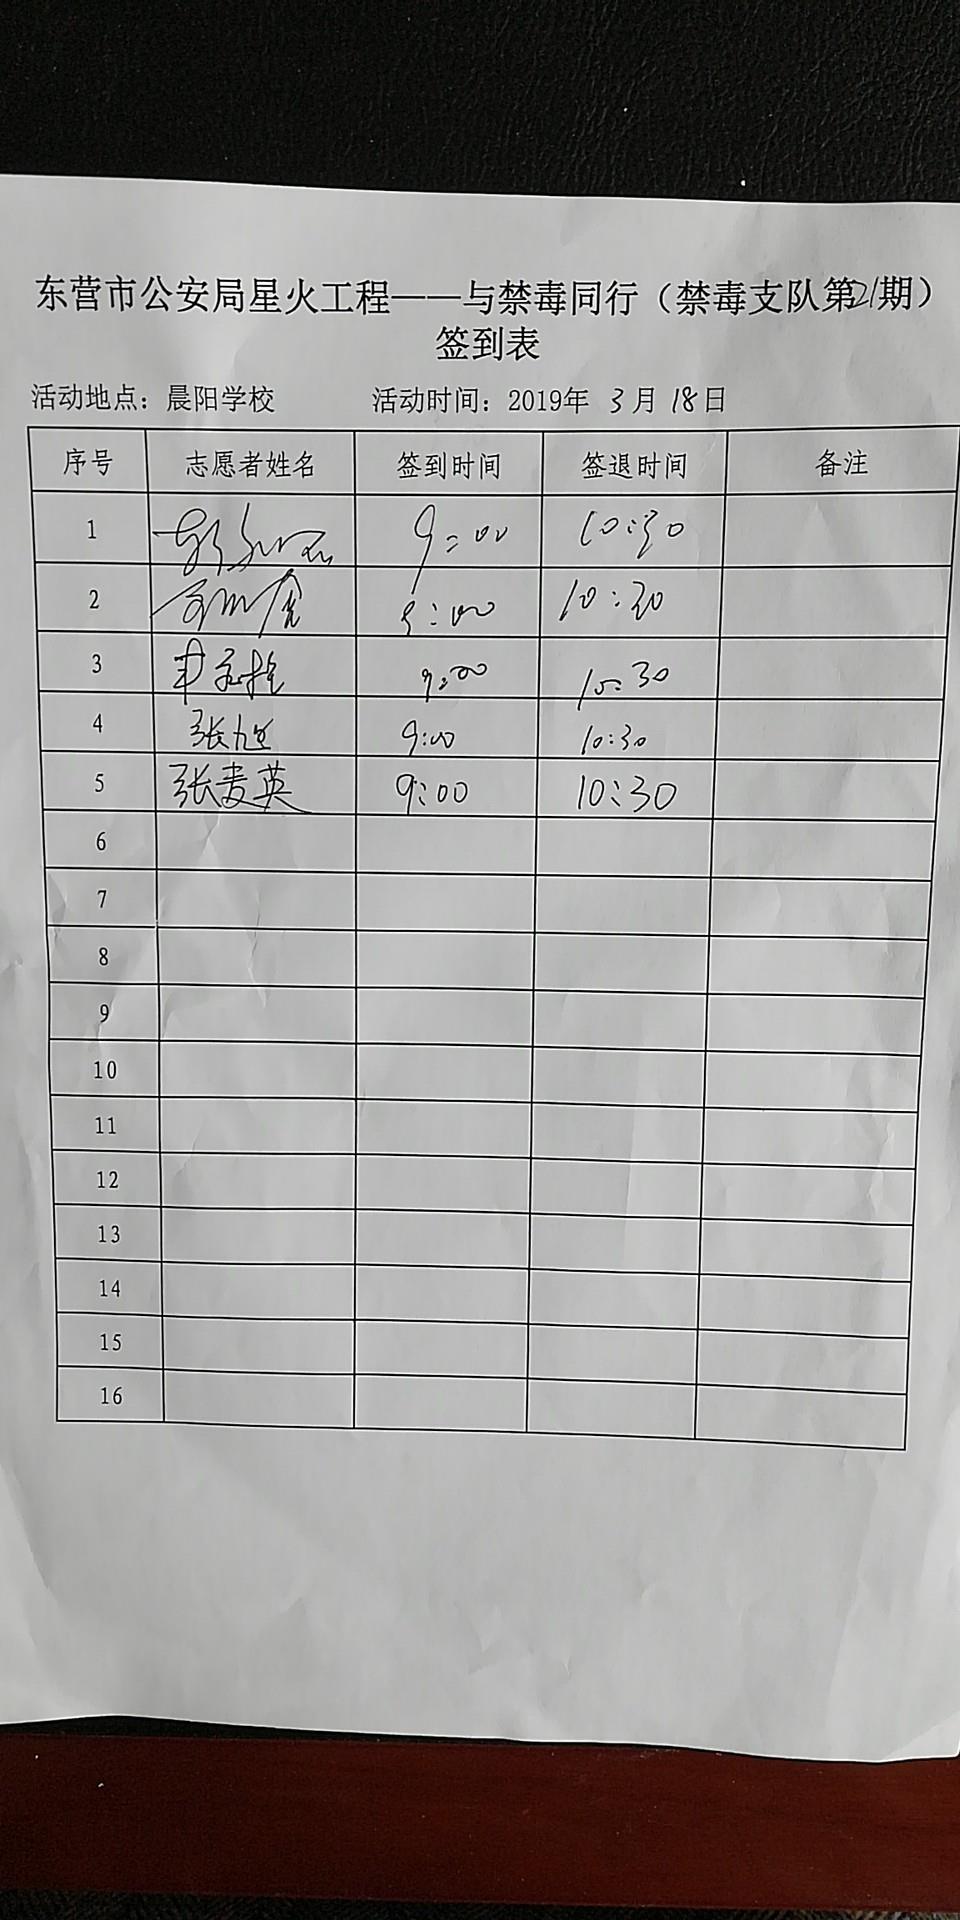 东营市公安局星火工程——与禁毒同行（禁毒支队第21期）
签到表
活动地点：晨阳学校 活动时间：2019年 3月 18日
序号 志愿者姓名 签到时间 签退时间 备注
1 9:00 10:30
2 9:00 10:30
3 9:00 10:30
4 张旭 9:00 10:30
5 张麦英 9:00 10:30
6
7
8
9
10
11
12
13
14
15
16